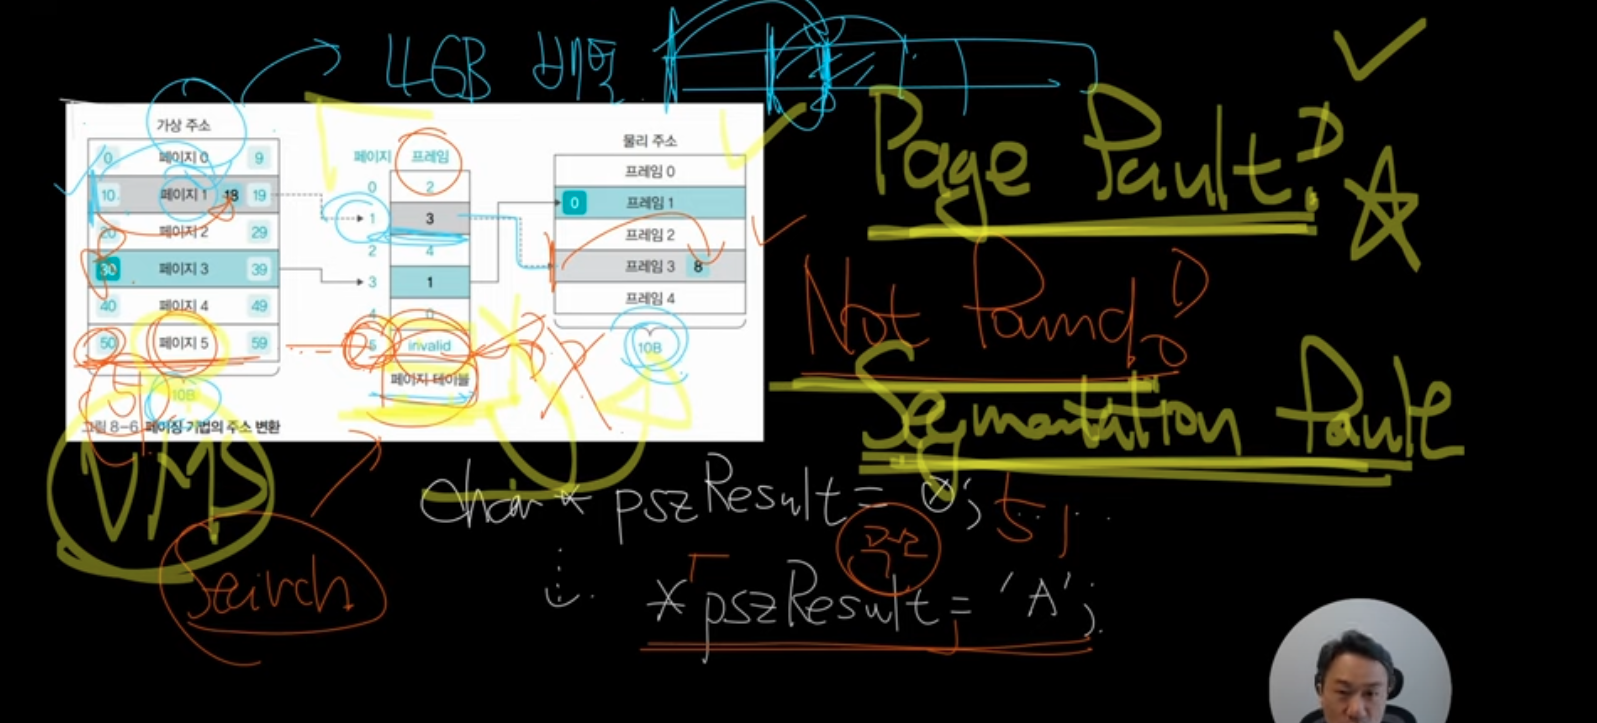 4GB 배열
가상 주소
0 페이지 0 9
10 페이지 1 18 19
20 페이지 2 29
30 페이지 3 39
40 페이지 4 49
50 페이지 5 59
10B
페이지 프레임
0 2
1 3
2 4
3 1
4 0
5 invalid
페이지 테이블
물리 주소
프레임 0
0 프레임 1
프레임 2
프레임 3 8
프레임 4
10B
그림 8-6 페이징 기법의 주소 변환
Page Pault!
Not Pound!
Segmentation Paule
VMS
51
Search
char* pszResult = 0; 51
주소
*pszResult = 'A';